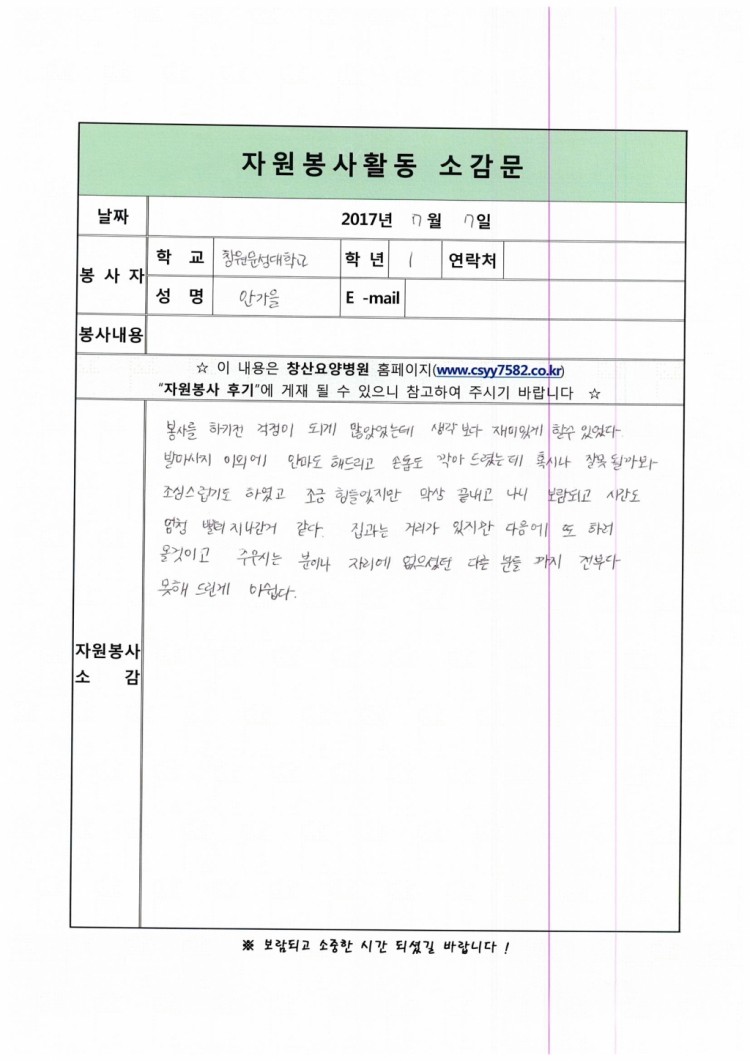 자원봉사활동 소감문
날짜 2017년 7월 7일
봉사자 학 교 창원문성대학교 학년 1 연락처
성 명 안가을 E -mail
봉사내용
☆ 이 내용은 창산요양병원 홈페이지(www.csyy7582.co.kr)
"자원봉사 후기"에 게재 될 수 있으니 참고하여 주시기 바랍니다 ☆
자원봉사
소 감
봉사를 하기전 걱정이 되게 많았었는데 생각 보다 재미있게 할수 있었다.
발마사지 이외에 안마도 해드리고 손톱도 깍아 드렸는데 혹시나 잘못될까봐
조심스럽기도 하였고 조금 힘들었지만 막상 끝내고 나니 보람되고 시간도
엄청 빨리 지나간거 같다. 집과는 거리가 있지만 다음에 또 하러
올것이고 주무시는 분이나 자리에 없으셨던 다른 분들 까지 전부다
못해 드린게 아쉽다.
※ 보람되고 소중한 시간 되셨길 바랍니다 !